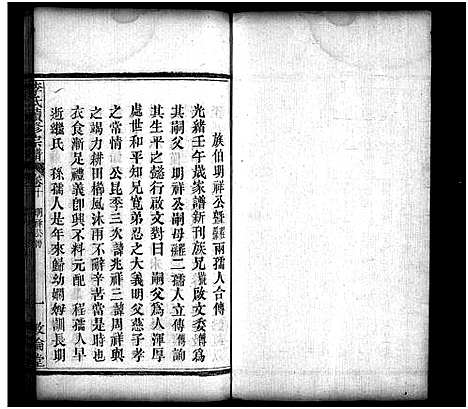 族伯明祥公暨羅兩孺人合傳
光緒壬午歲家譜新刊族兄啟文委譔為
其嗣父明祥公嗣母羅二孺人立傳傳詢
其生平之懿行啟文對曰嗣父為人渾厚
處世和平知兄寬弟忍之大義明父慈子孝
之常情公昆季三次壽兆祥三壽周祥與
之竭力耕田櫛風沐雨不辭辛苦當是時也
衣食漸足禮義即興不料元配程孺人早
逝繼氏孫孺人是年來歸幼嫻姆訓長期
李氏續修宗譜卷
明祥公傳
一
敦倫堂